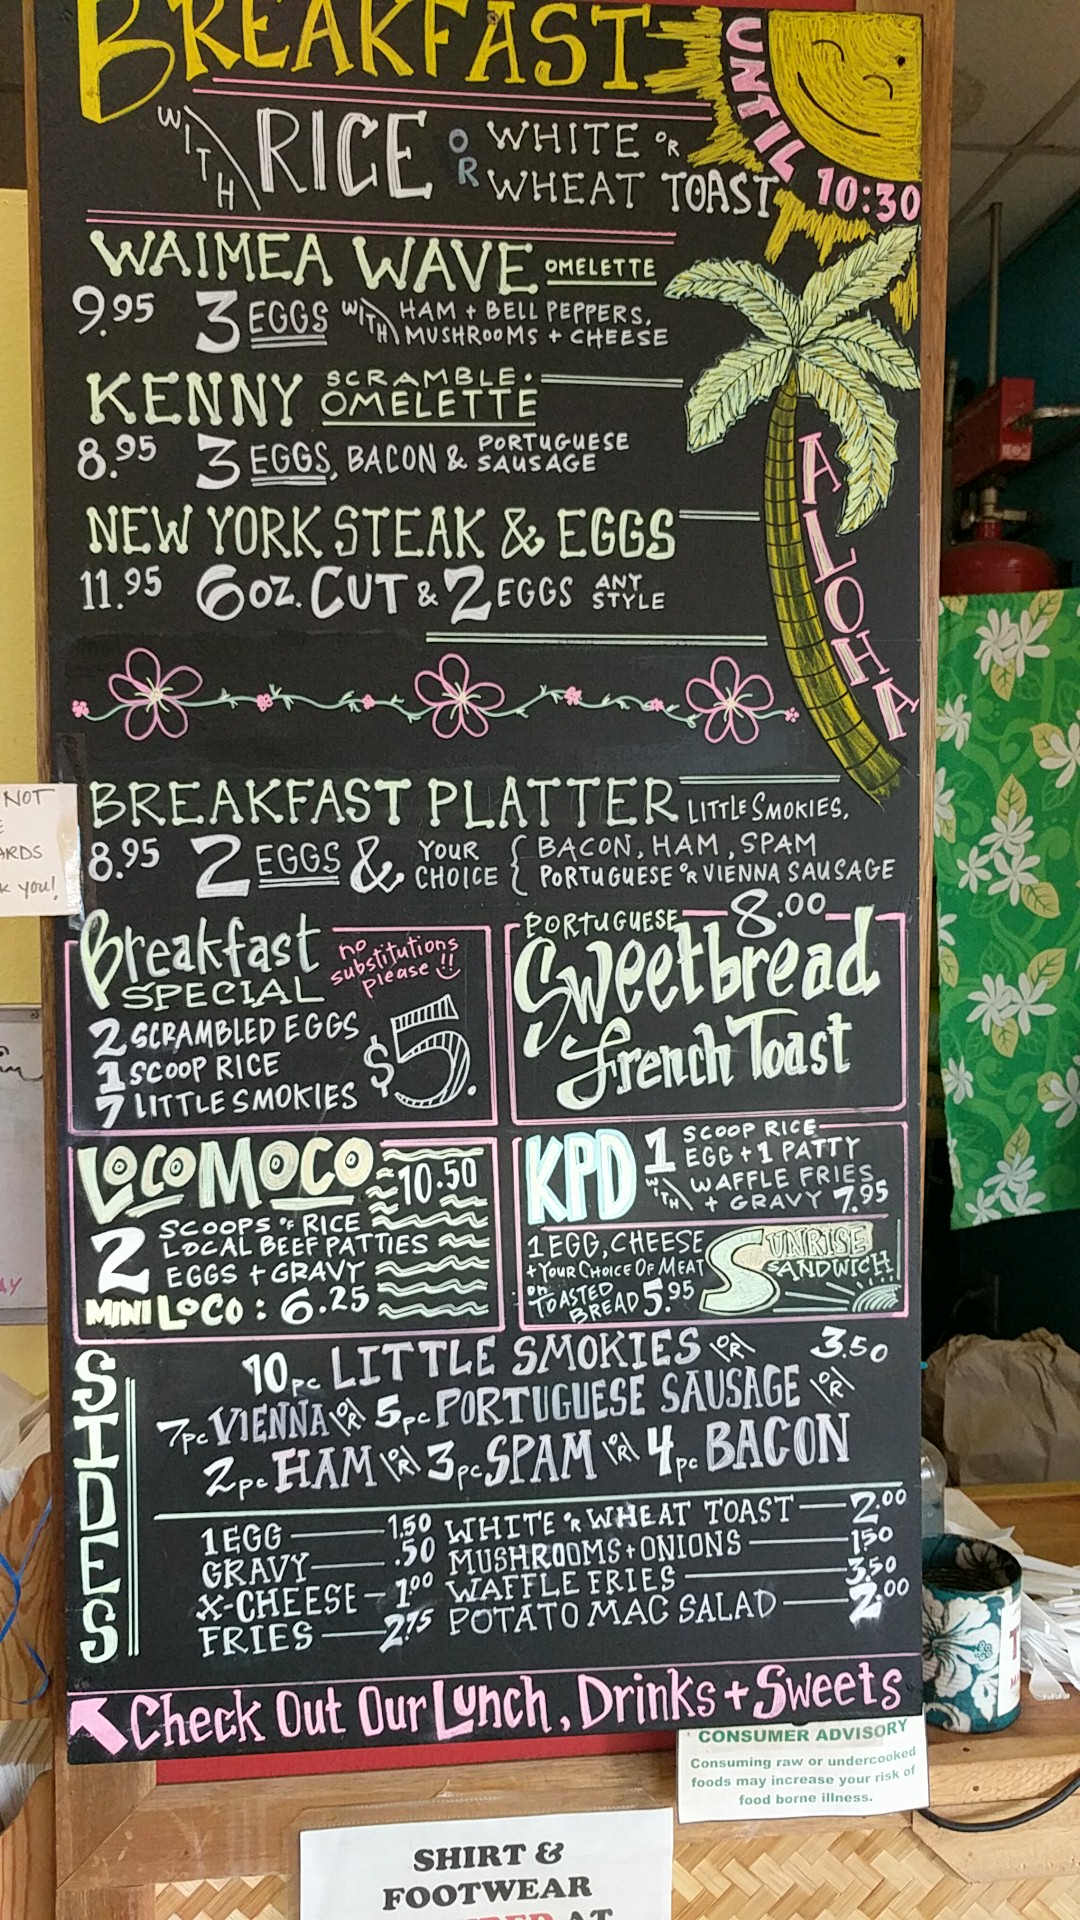 BREAKFAST
UNTIL 10:30
WITH RICE OR WHITE OR WHEAT TOAST
WAIMEA WAVE OMELETTE
9.95 3 EGGS WITH HAM + BELL PEPPERS, MUSHROOMS + CHEESE
KENNY SCRAMBLE. OMELETTE
8.95 3 EGGS, BACON & PORTUGUESE SAUSAGE
NEW YORK STEAK & EGGS
11.95 6 OZ. CUT & 2 EGGS ANY STYLE
ALOHA
BREAKFAST PLATTER LITTLE SMOKIES,
8.95 2 EGGS & YOUR CHOICE { BACON, HAM, SPAM
PORTUGUESE OR VIENNA SAUSAGE
NOT
ARDS
you!
Breakfast
SPECIAL
no substitutions please!!
2 SCRAMBLED EGGS
1 SCOOP RICE
7 LITTLE SMOKIES
$5.
PORTUGUESE 8.00
Sweetbread
French Toast
LOCO MOCO 10.50
2 SCOOPS OF RICE
LOCAL BEEF PATTIES
EGGS + GRAVY
MINI LOCO: 6.25
KPD 1 SCOOP RICE
EGG + 1 PATTY
WITH WAFFLE FRIES
+ GRAVY 7.95
1 EGG, CHEESE
+ YOUR CHOICE OF MEAT
on TOASTED
BREAD 5.95
SUNRISE
SANDWICH
SIDES
10pc LITTLE SMOKIES OR 3.50
7pc VIENNA OR 5pc PORTUGUESE SAUSAGE OR
2pc HAM OR 3pc SPAM OR 4pc BACON
1 EGG 1.50
GRAVY .50
X-CHEESE 1.00
FRIES 2.75
WHITE OR WHEAT TOAST 2.00
MUSHROOMS + ONIONS 1.50
WAFFLE FRIES 3.50
POTATO MAC SALAD 2.00
Check Out Our Lunch, Drinks + Sweets
CONSUMER ADVISORY
Consuming raw or undercooked
foods may increase your risk of
food borne illness.
SHIRT &
FOOTWEAR
AT